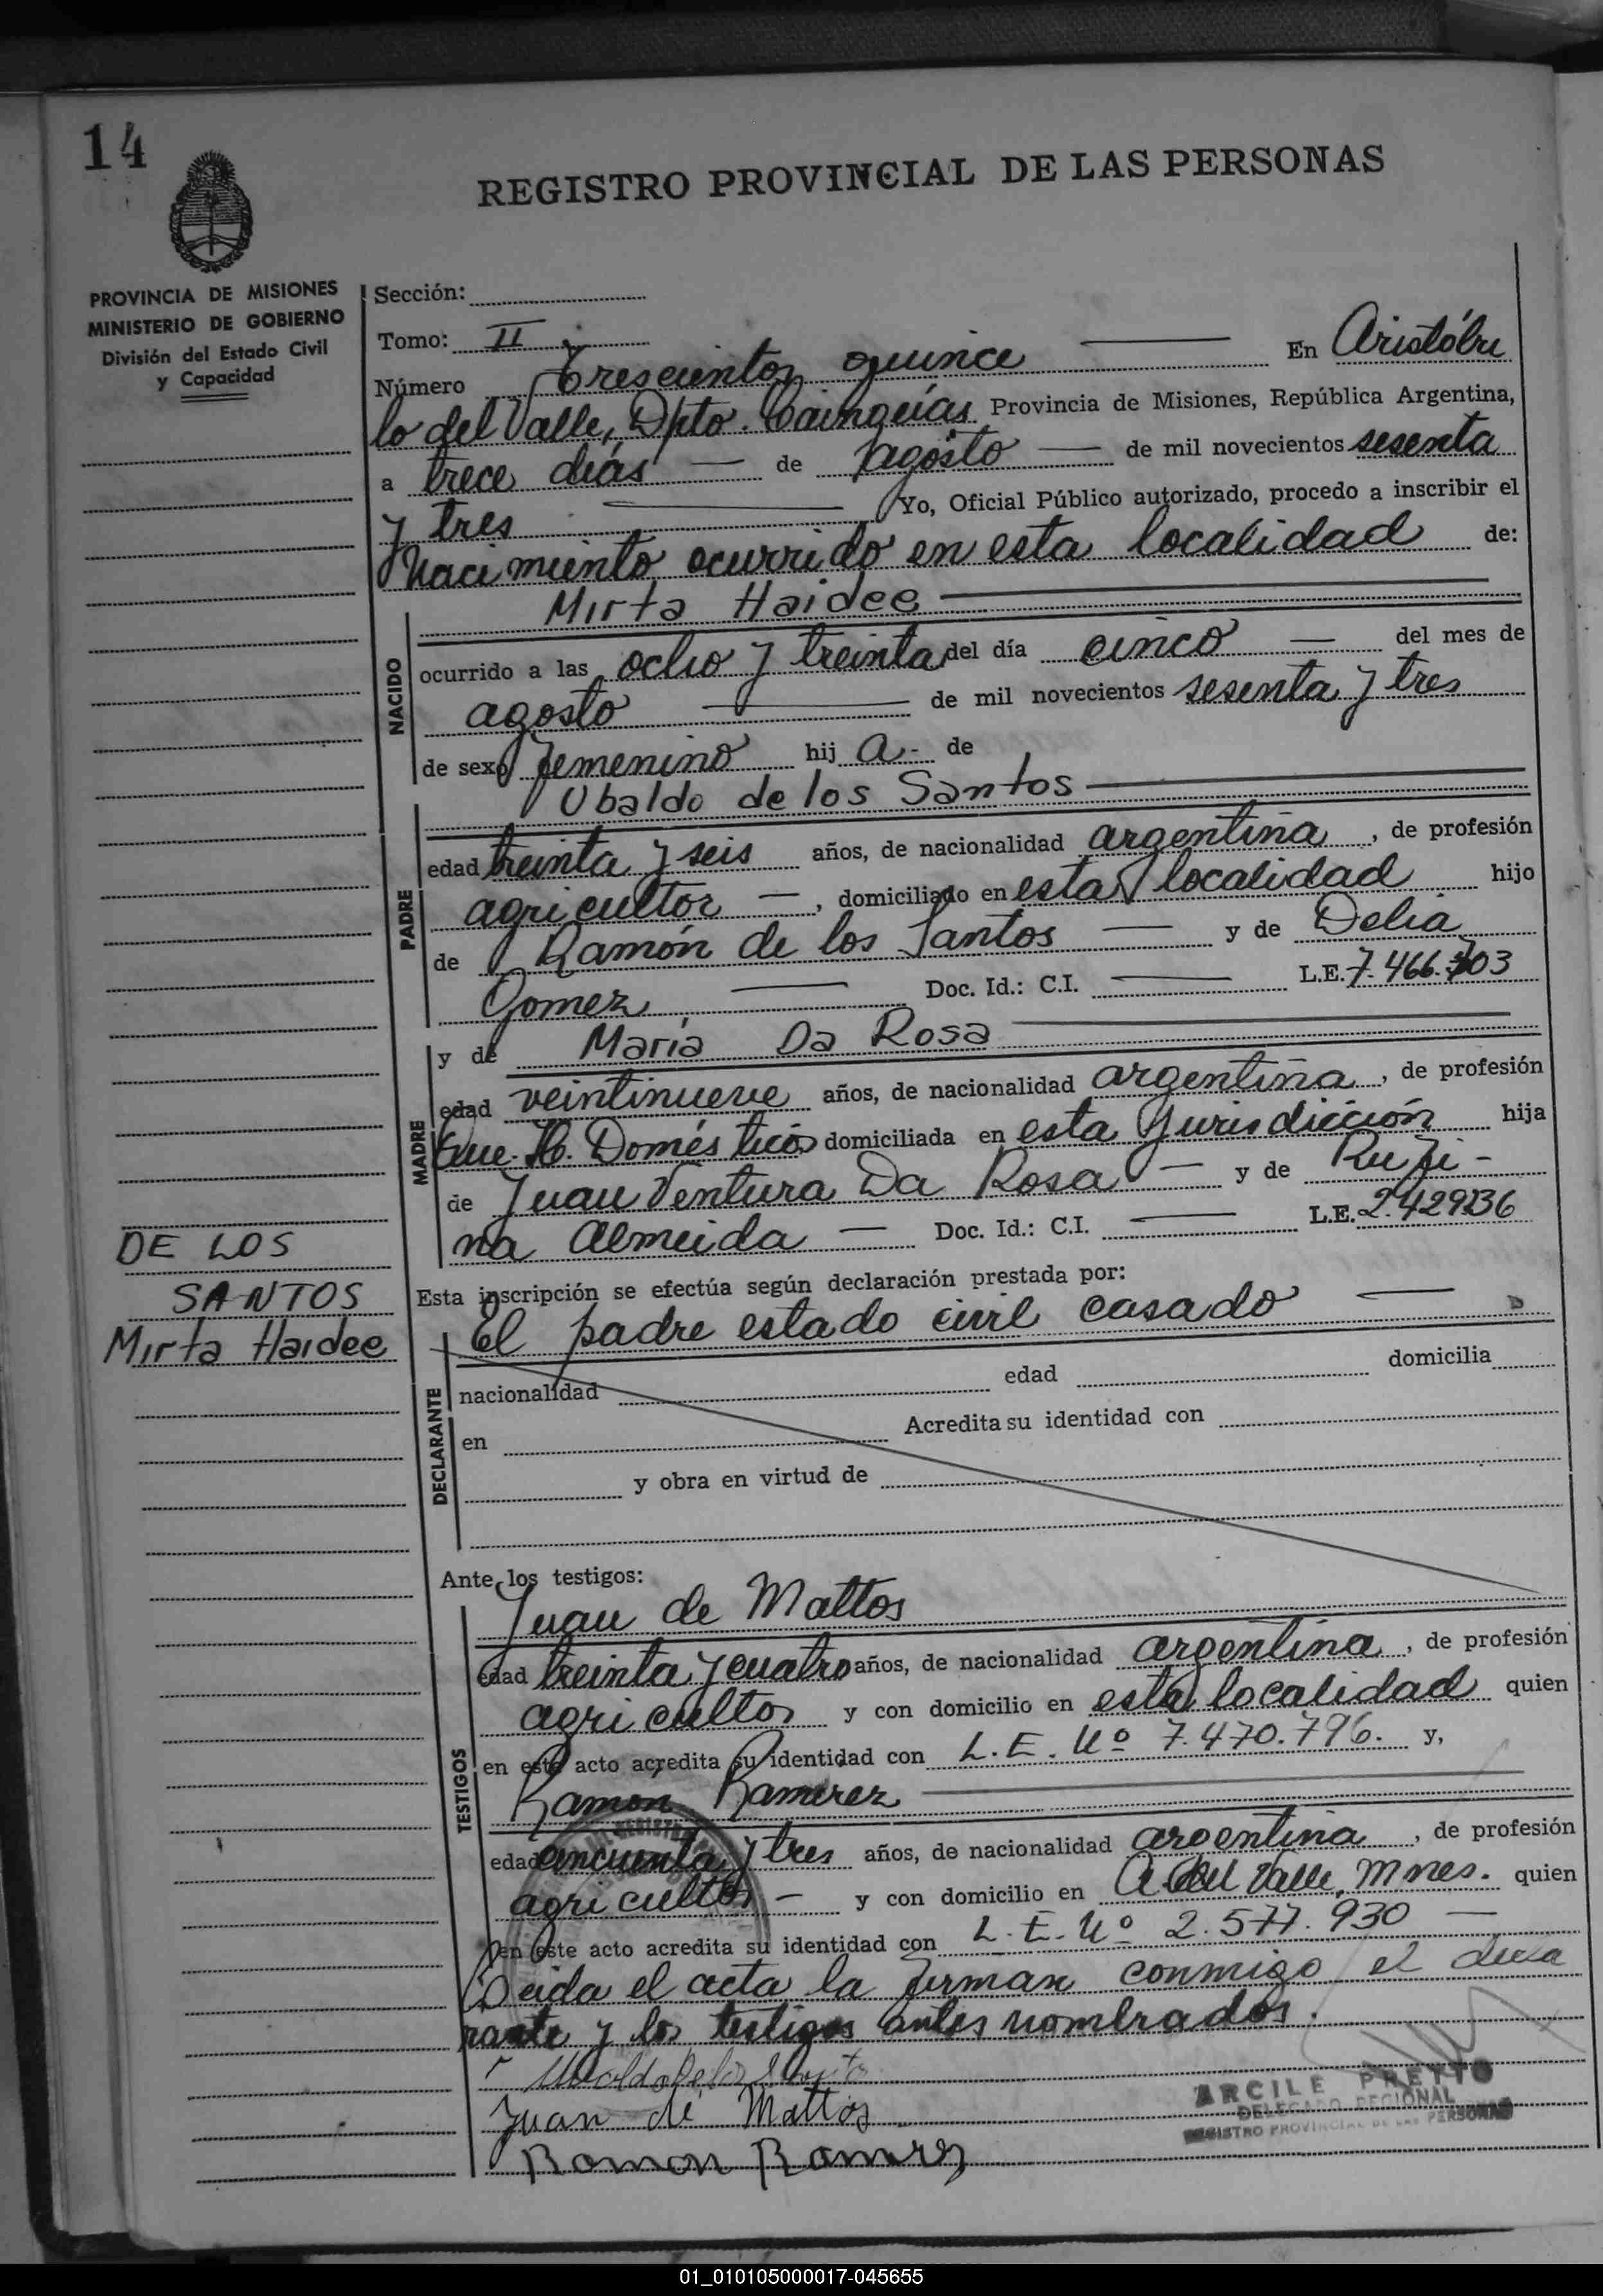 14
REGISTRO PROVINCIAL DE LAS PERSONAS
PROVINCIA DE MISIONES
MINISTERIO DE GOBIERNO
División del Estado Civil
y Capacidad
Sección:
Tomo: II
Número Trescientos quince En Aristóbu
lo del Valle, Dpto. Cainguías Provincia de Misiones, República Argentina,
a trece días de agosto de mil novecientos sesenta
y tres Yo, Oficial Público autorizado, procedo a inscribir el
Nacimiento ocurrido en esta localidad de:
NACIDO
Mirta Haidee
ocurrido a las ocho y treinta del día cinco del mes de
agosto de mil novecientos sesenta y tres
de sexo femenino hij a - de
PADRE
Ubaldo de los Santos
edad treinta y seis años, de nacionalidad argentina, de profesión
agricultor, domiciliado en esta localidad hijo
de Ramón de los Santos y de Delia
Gomez Doc. Id.: C.I. L.E. 7.466.703
MADRE
y de María Da Rosa
edad veintinueve años, de nacionalidad argentina, de profesión
Que. H. Domésticos domiciliada en esta Jurisdicción hija
de Juan Ventura Da Rosa y de Rufi-
na Almeida Doc. Id.: C.I. L.E. 2.429236
DE LOS
SANTOS
Mirta Haidee
Esta inscripción se efectúa según declaración prestada por:
El padre estado civil casado
DECLARANTE
nacionalidad edad domicilia
en Acredita su identidad con
y obra en virtud de
Ante los testigos:
TESTIGOS
Juan de Mattos
edad treinta y cuatro años, de nacionalidad argentina, de profesión
agricultor y con domicilio en esta localidad quien
en este acto acredita su identidad con L.E. Nº 7.470.796. y,
Ramón Ramirez
edad cincuenta y tres años, de nacionalidad argentina, de profesión
agricultor - y con domicilio en A. del Valle, Mnes. quien
en este acto acredita su identidad con L.E. Nº 2.577.930
Leida el acta la firman conmigo el decla
rante y los testigos antes nombrados.
Ubaldo de los Santos
Juan de Mattos
Ramon Ramirez
ARCILE PRETTO
DELEGADO REGIONAL
REGISTRO PROVINCIAL DE LAS PERSONAS
01_010105000017-045655